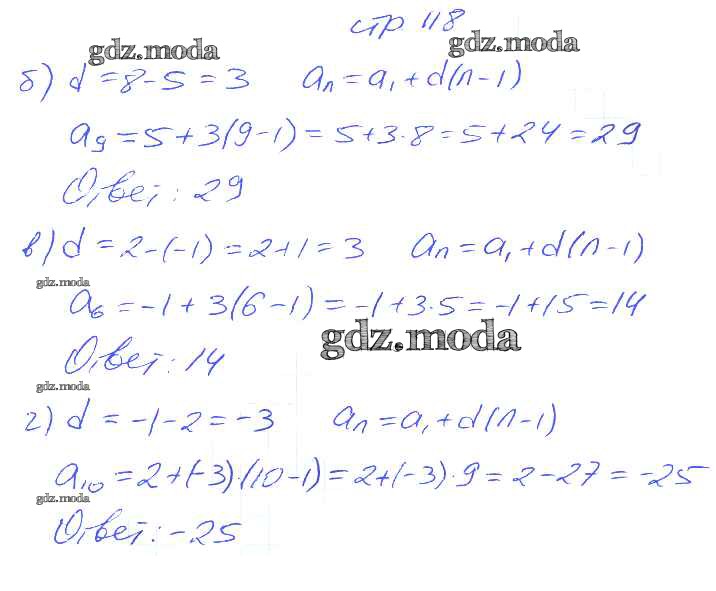 стр 118
gdz.moda gdz.moda
б) d = 8 - 5 = 3 aₙ = a₁ + d(n - 1)
a₉ = 5 + 3(9 - 1) = 5 + 3·8 = 5 + 24 = 29
Ответ: 29
в) d = 2 - (-1) = 2 + 1 = 3 aₙ = a₁ + d(n - 1)
gdz.moda
a₆ = -1 + 3(6 - 1) = -1 + 3·5 = -1 + 15 = 14
gdz.moda
Ответ: 14
gdz.moda
г) d = -1 - 2 = -3 aₙ = a₁ + d(n - 1)
a₁₀ = 2 + (-3)·(10 - 1) = 2 + (-3)·9 = 2 - 27 = -25
gdz.moda
Ответ: -25